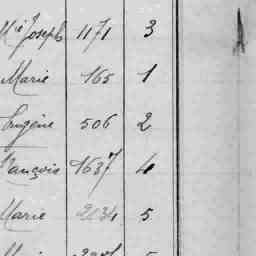 Mie Joseph 1171 3
Marie 165 1
Eugène 506 2
François 1637 4
Marie 2034 5